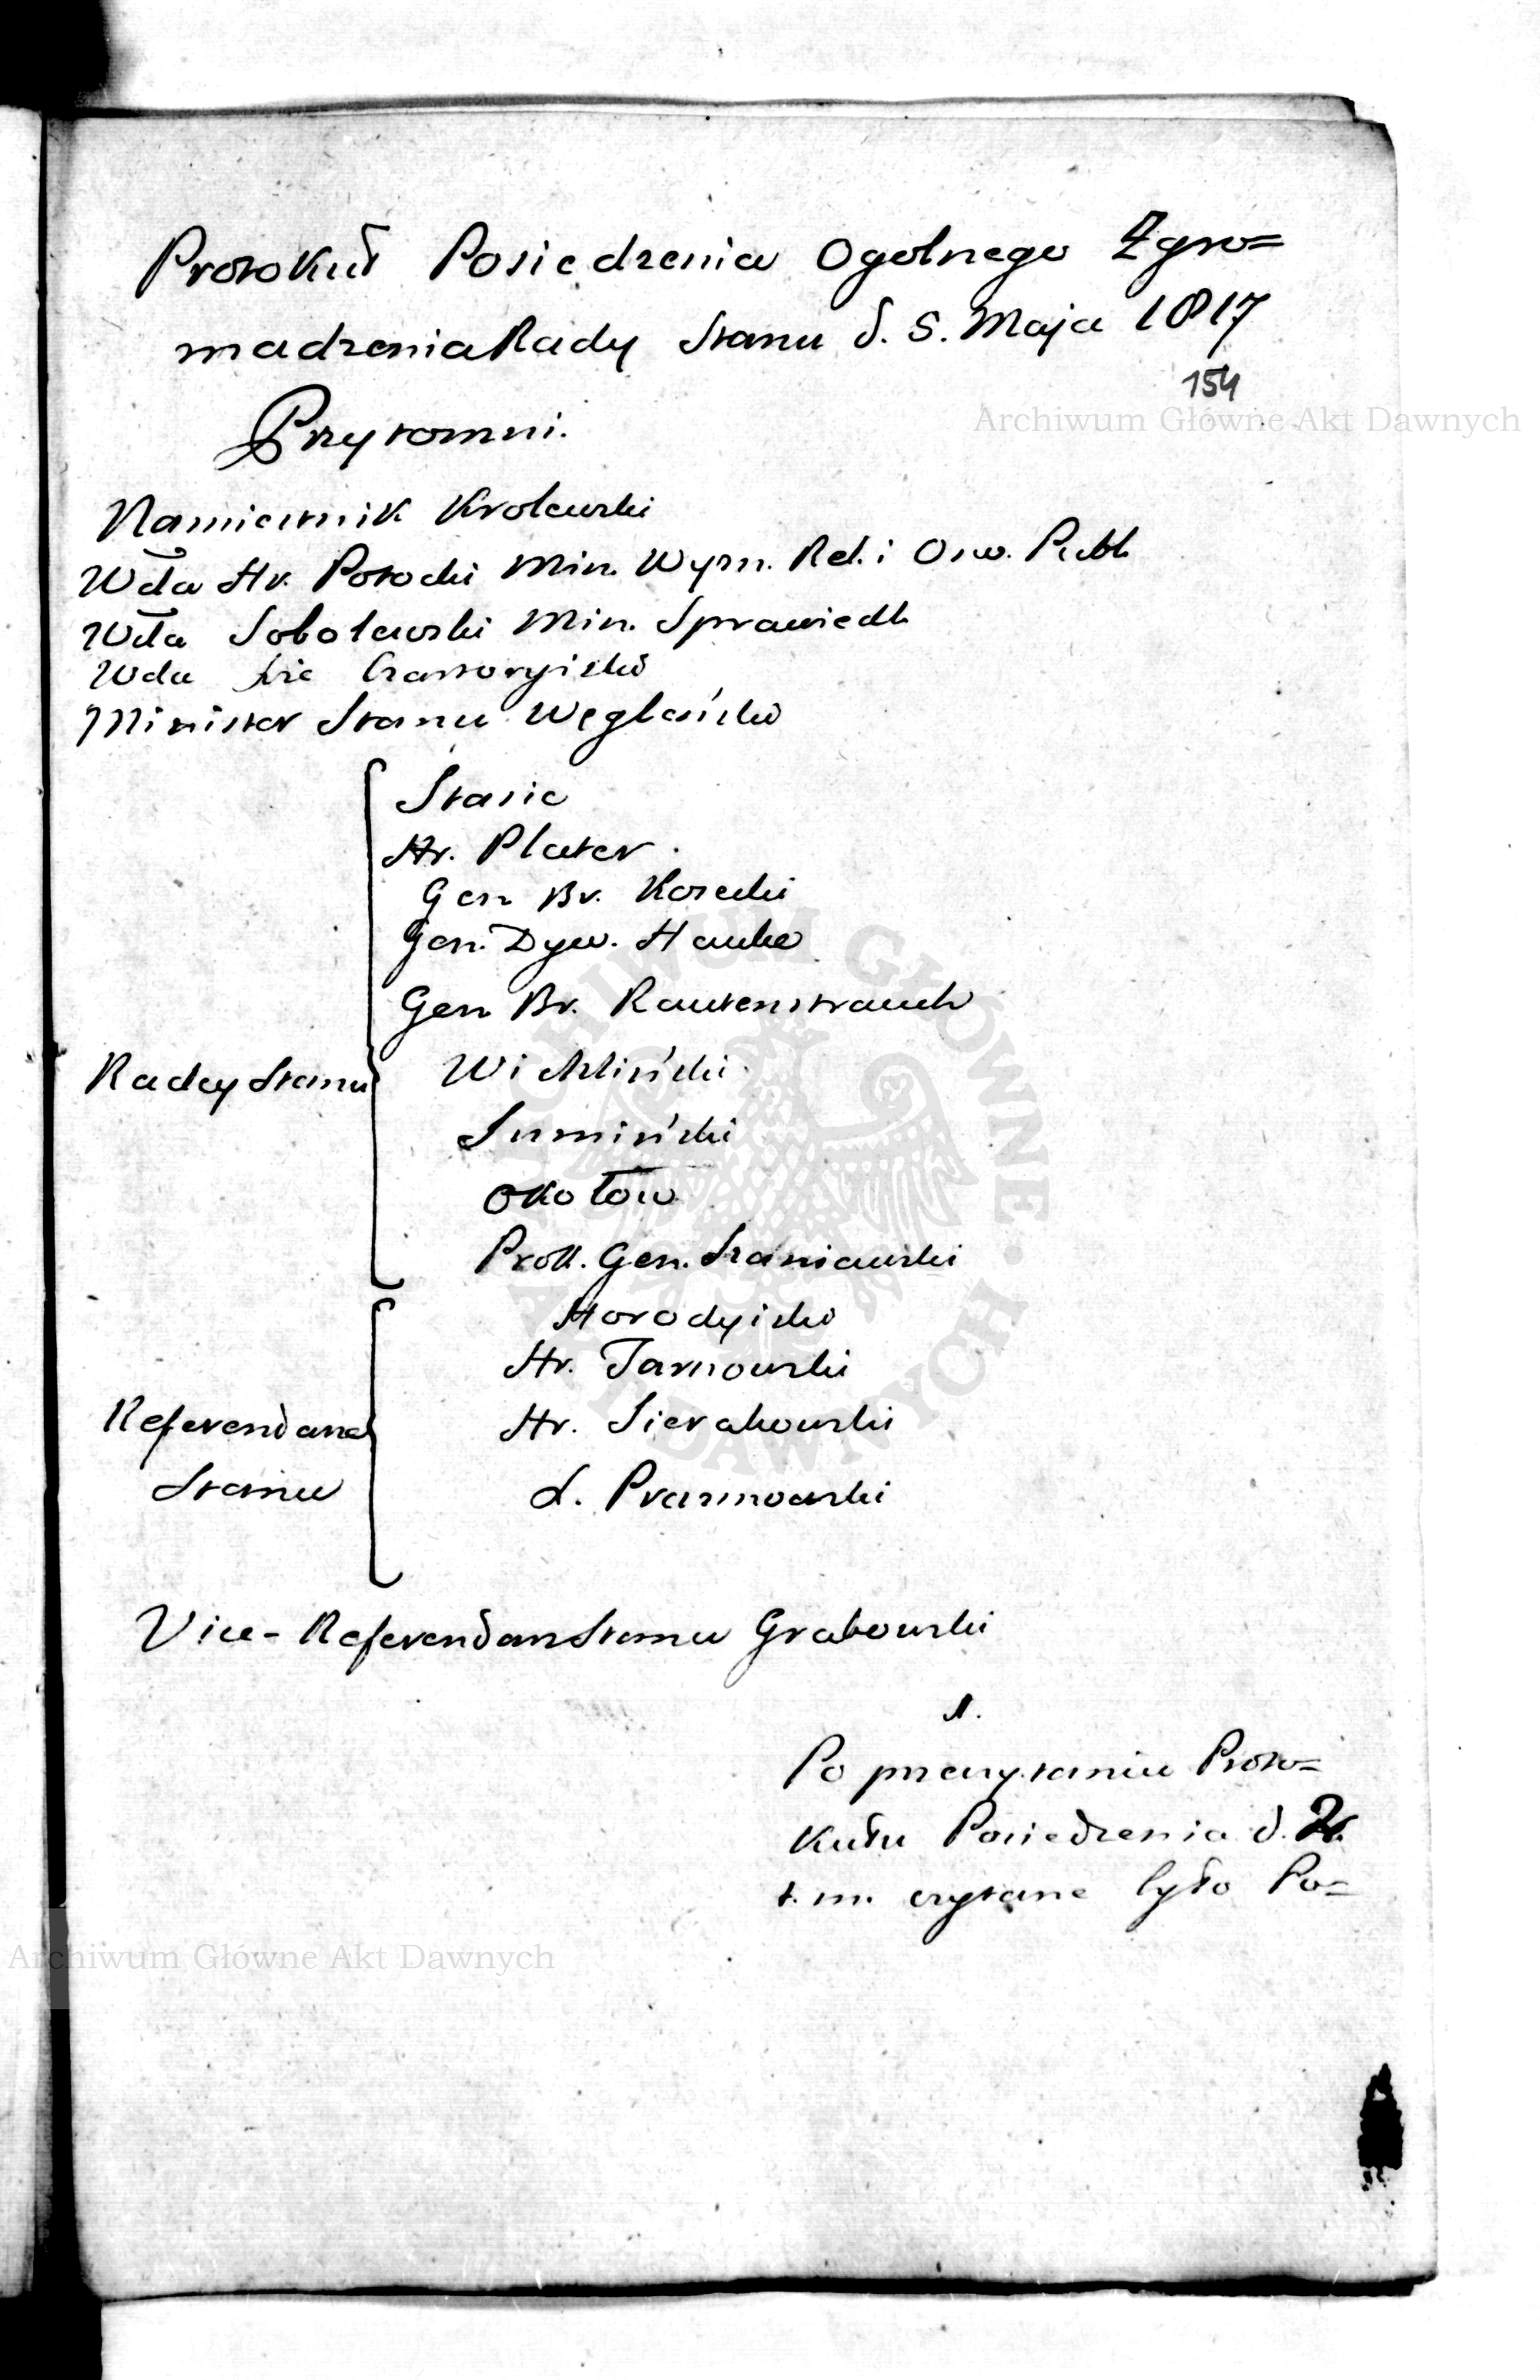 Protokuł Posiedzenia Ogolnego Zgro=
madzenia Rady Stanu d. 5. Maja 1817
154
Archiwum Główne Akt Dawnych
Przytomni.
Namiestnik Krolewski
Wda Hr. Potocki Min. Wyzn. Rel. i Osw. Publ.
Wda Sobolewski Min. Sprawiedl.
Wda Xże Czartoryiski
Minister Stanu Węgleński
Radcy Stanu
Stasic
Hr. Plater.
Gen Br. Kosecki
Gen. Dyw. Hauke
Gen Br. Rautenstrauch
Wichliński
Sumiński
Okołow
Prok. Gen. Szaniawski
Referendarze
Stanu
Horodyiski
Hr. Tarnowski
Hr. Sierakowski
X. Prazmowski
Vice-Referendarz Stanu Grabowski
1.
Po przeczytaniu Proto=
kułu Posiedzenia d. 2.
t. m. czytane było Po=
Archiwum Główne Akt Dawnych
ARCHIWUM GŁÓWNE AKT DAWNYCH